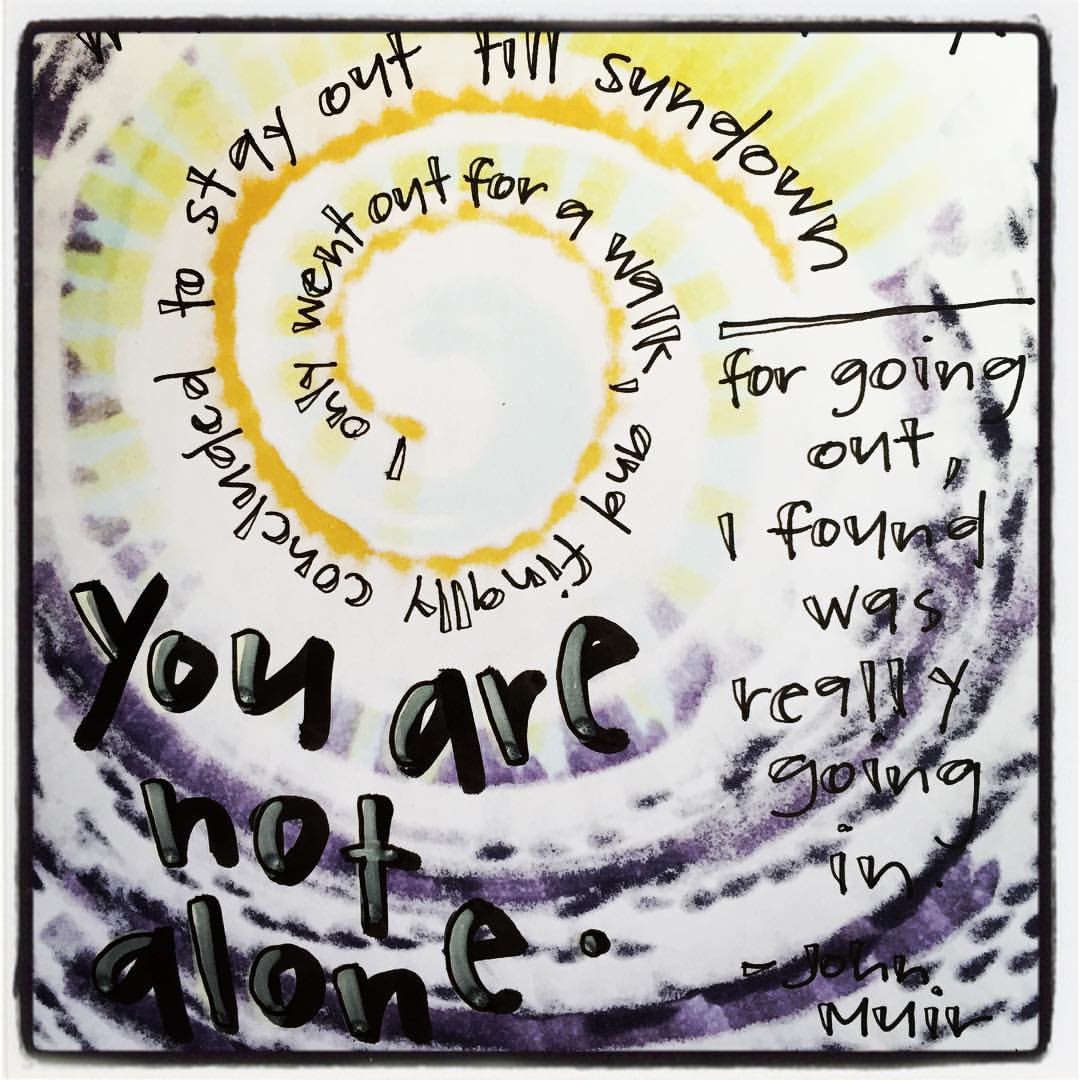 I only went out for a walk, and finally concluded to stay out till sundown
for going
out,
I found
was
really
going
in.
- John
Muir
You are
not
alone.